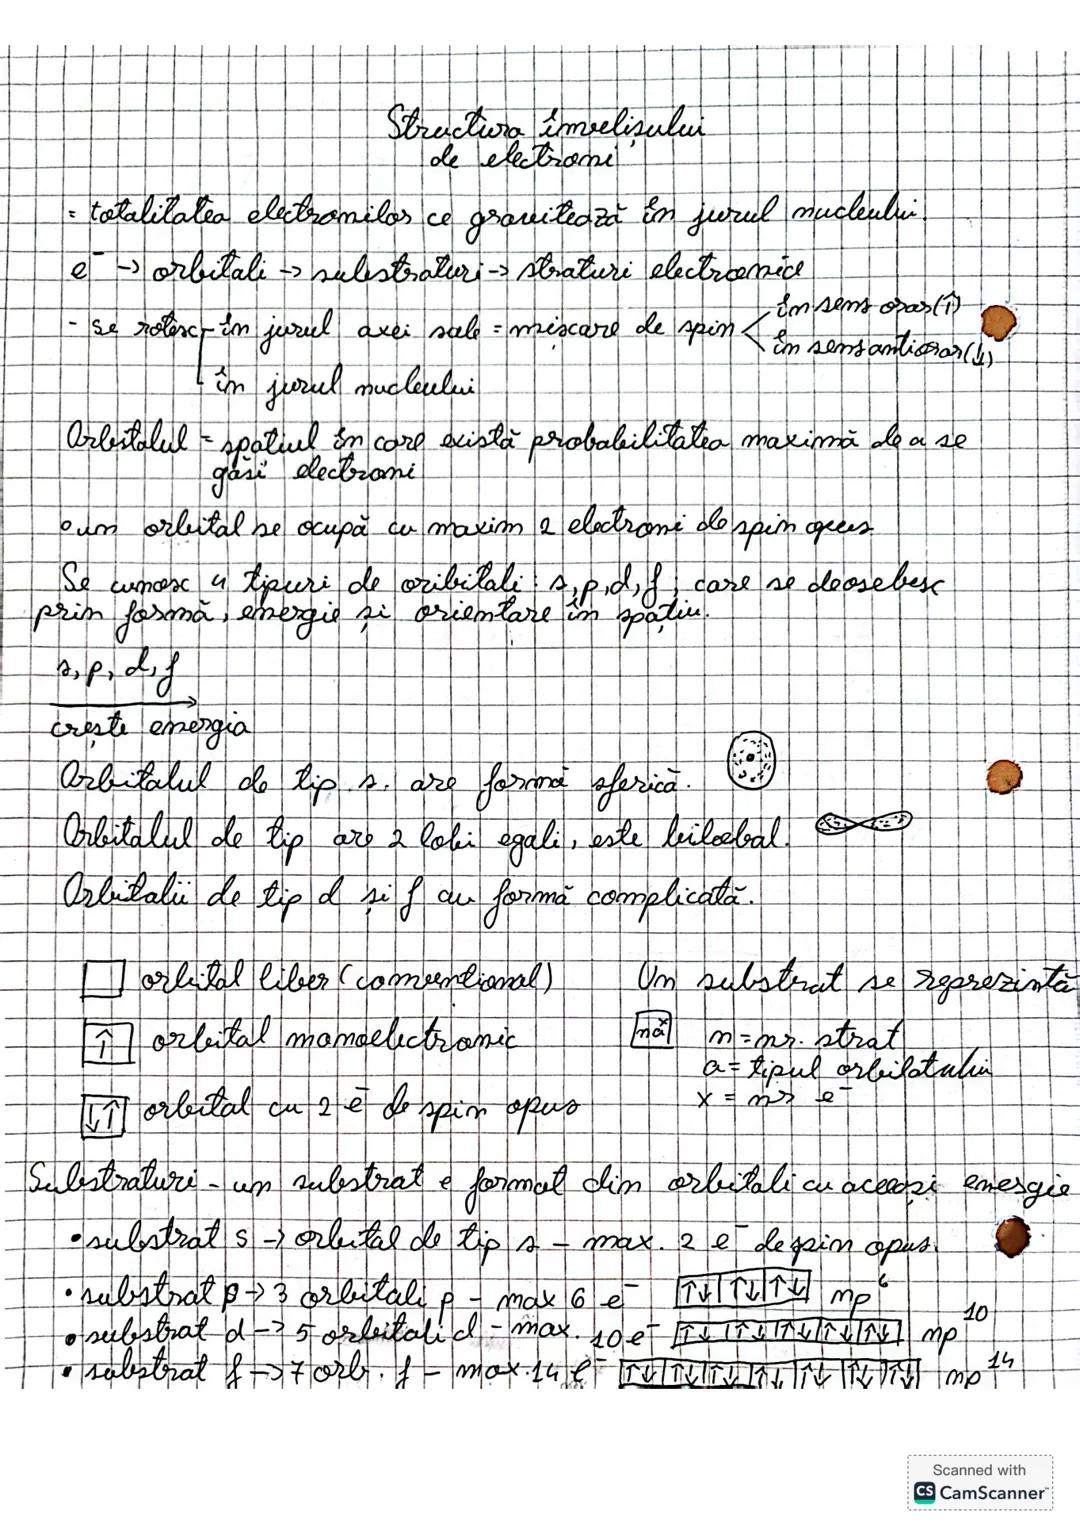 Structura învelișului
de electroni
= totalitatea electronilor ce gravitează în jurul nucleului.
e⁻ → orbitali → substraturi → straturi electronice
- se rotesc - în jurul axei sale = mișcare de spin < în sens orar (↑)
în sens antiorar (↓)
în jurul nucleului
Orbitalul = spațiul în care există probabilitatea maximă de a se
găsi electroni
• un orbital se ocupă cu maxim 2 electroni de spin opus.
Se cunosc 4 tipuri de oribitali : s, p, d, f, care se deosebesc
prin formă, energie și orientare în spațiu.
s, p, d, f
crește energia
Orbitalul de tip s. are formă sferică.
Orbitalul de tip are 2 lobi egali, este bilobal.
Orbitalii de tip d și f au formă complicată.
orbital liber (convențional) Un substrat se reprezintă
↑ orbital monoelectronic naˣ n = nr. strat
a = tipul orbilatului
↓↑ orbital cu 2 e⁻ de spin opus x = nr e⁻
Substraturi - un substrat e format din orbitali cu aceeași energie
• substrat s → orbital de tip s - max. 2 e⁻ de spin opus.
• substrat p → 3 orbitali p - max 6 e⁻ ↑↓ ↑↓ ↑↓ np⁶
• substrat d → 5 orbitali d - max. 10 e⁻ ↑↓ ↑↓ ↑↓ ↑↓ ↑↓ np¹⁰
• substrat f → 7 orb. f - max. 14 e⁻ ↑↓ ↑↓ ↑↓ ↑↓ ↑↓ ↑↓ ↑↓ np¹⁴
Scanned with
CS CamScanner